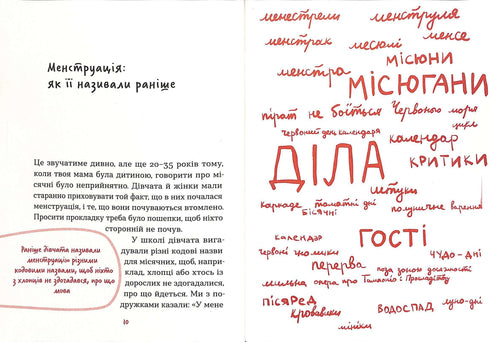 Менструація:
як її називали раніше
Це звучатиме дивно, але ще 20–35 років тому,
коли твоя мама була дитиною, говорити про мі-
сячні було неприйнятно. Дівчата й жінки мали
старанно приховувати той факт, що в них почалася
менструація, і те, що вони почуваються втомлено.
Просити прокладку треба було пошепки, щоб ніхто
сторонній не почув.
У школі дівчата вига-
дували різні кодові назви
для місячних, щоб, напри-
клад, хлопці або хтось із
дорослих не здогадалися,
про що йдеться. Ми з по-
дружками казали: «У мене
Раніше дівчата називали
менструацію різними
кодовими назвами, щоб ніхто
з хлопців не здогадався, про що
мова
10
менестрели менструля
менстрак месюлі менсе
МІСЮНИ
менстра МІСЮГАНИ
пірат не боїться Червоного моря
червоний день календаря
календар
ДІЛА КРИТИКИ
штуки
томатні дні
бісячні полуничне варення
календар ГОСТІ
червоні чудо-дні
перерва поза зоною досяжності
мильна опера про
ПІСЯРЕД
кровавики ВОДОСПАД луно-дні
мініки